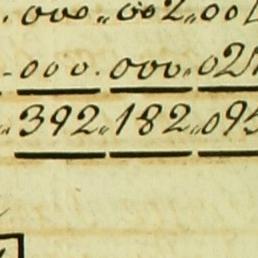 .000„002„001
-000.000„02
„392„182„095